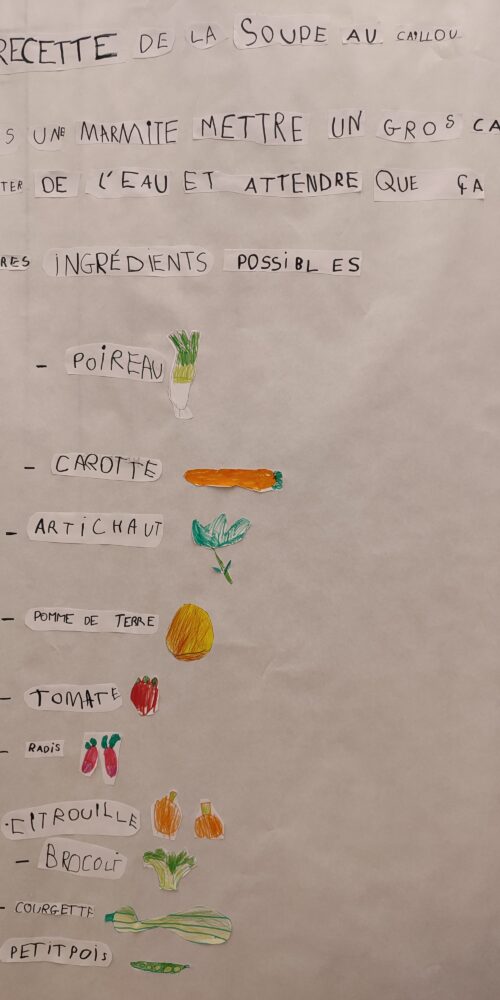 RECETTE DE LA SOUPE AU CAILLOU
S UNE MARMITE METTRE UN GROS CA
TER DE L'EAU ET ATTENDRE QUE ÇA
RES INGRÉDIENTS POSSIBLES
- POIREAU
- CAROTTE
- ARTICHAUT
- POMME DE TERRE
- TOMATE
- RADIS
- CITROUILLE
- BROCOLI
- COURGETTE
PETIT POIS